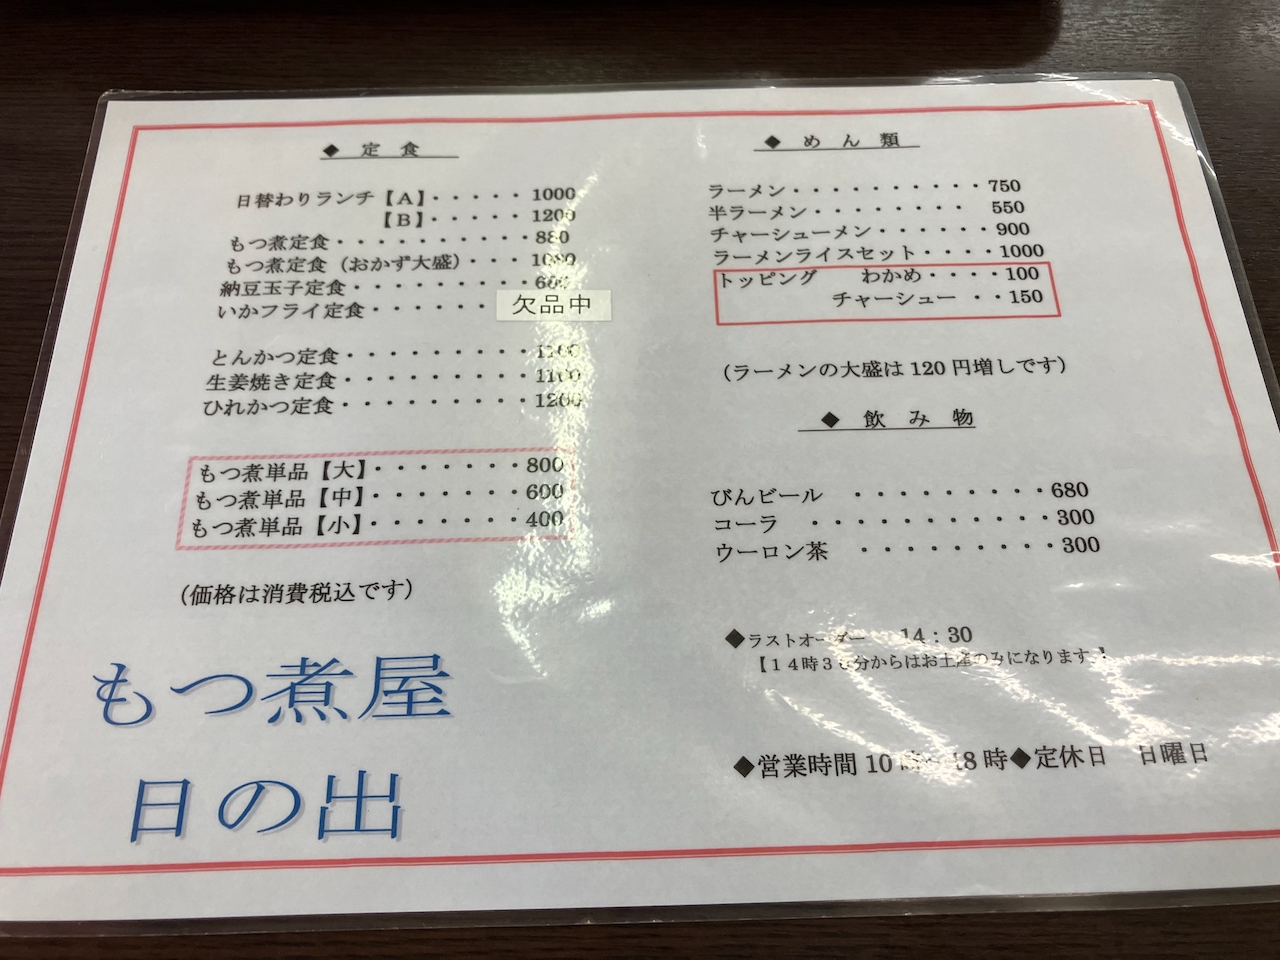 ◆ 定 食
日替わりランチ【A】・・・・・1000
【B】・・・・・1200
もつ煮定食・・・・・・・・・・880
もつ煮定食（おかず大盛）・・・1080
納豆玉子定食・・・・・・・・・600
いかフライ定食・・・・・・ 欠品中
とんかつ定食・・・・・・・・・1100
生姜焼き定食・・・・・・・・・1100
ひれかつ定食・・・・・・・・・1200
もつ煮単品【大】・・・・・・・800
もつ煮単品【中】・・・・・・・600
もつ煮単品【小】・・・・・・・400
（価格は消費税込です）
もつ煮屋
日の出
◆ め ん 類
ラーメン・・・・・・・・・・750
半ラーメン・・・・・・・・ 550
チャーシューメン・・・・・・900
ラーメンライスセット・・・・1000
トッピング わかめ・・・・100
チャーシュー ・・150
（ラーメンの大盛は120円増しです）
◆ 飲 み 物
びんビール ・・・・・・・・・680
コーラ ・・・・・・・・・・・300
ウーロン茶 ・・・・・・・・・300
◆ラストオーダー 14：30
【１４時３０分からはお土産のみになります】
◆営業時間 10時～18時◆定休日 日曜日